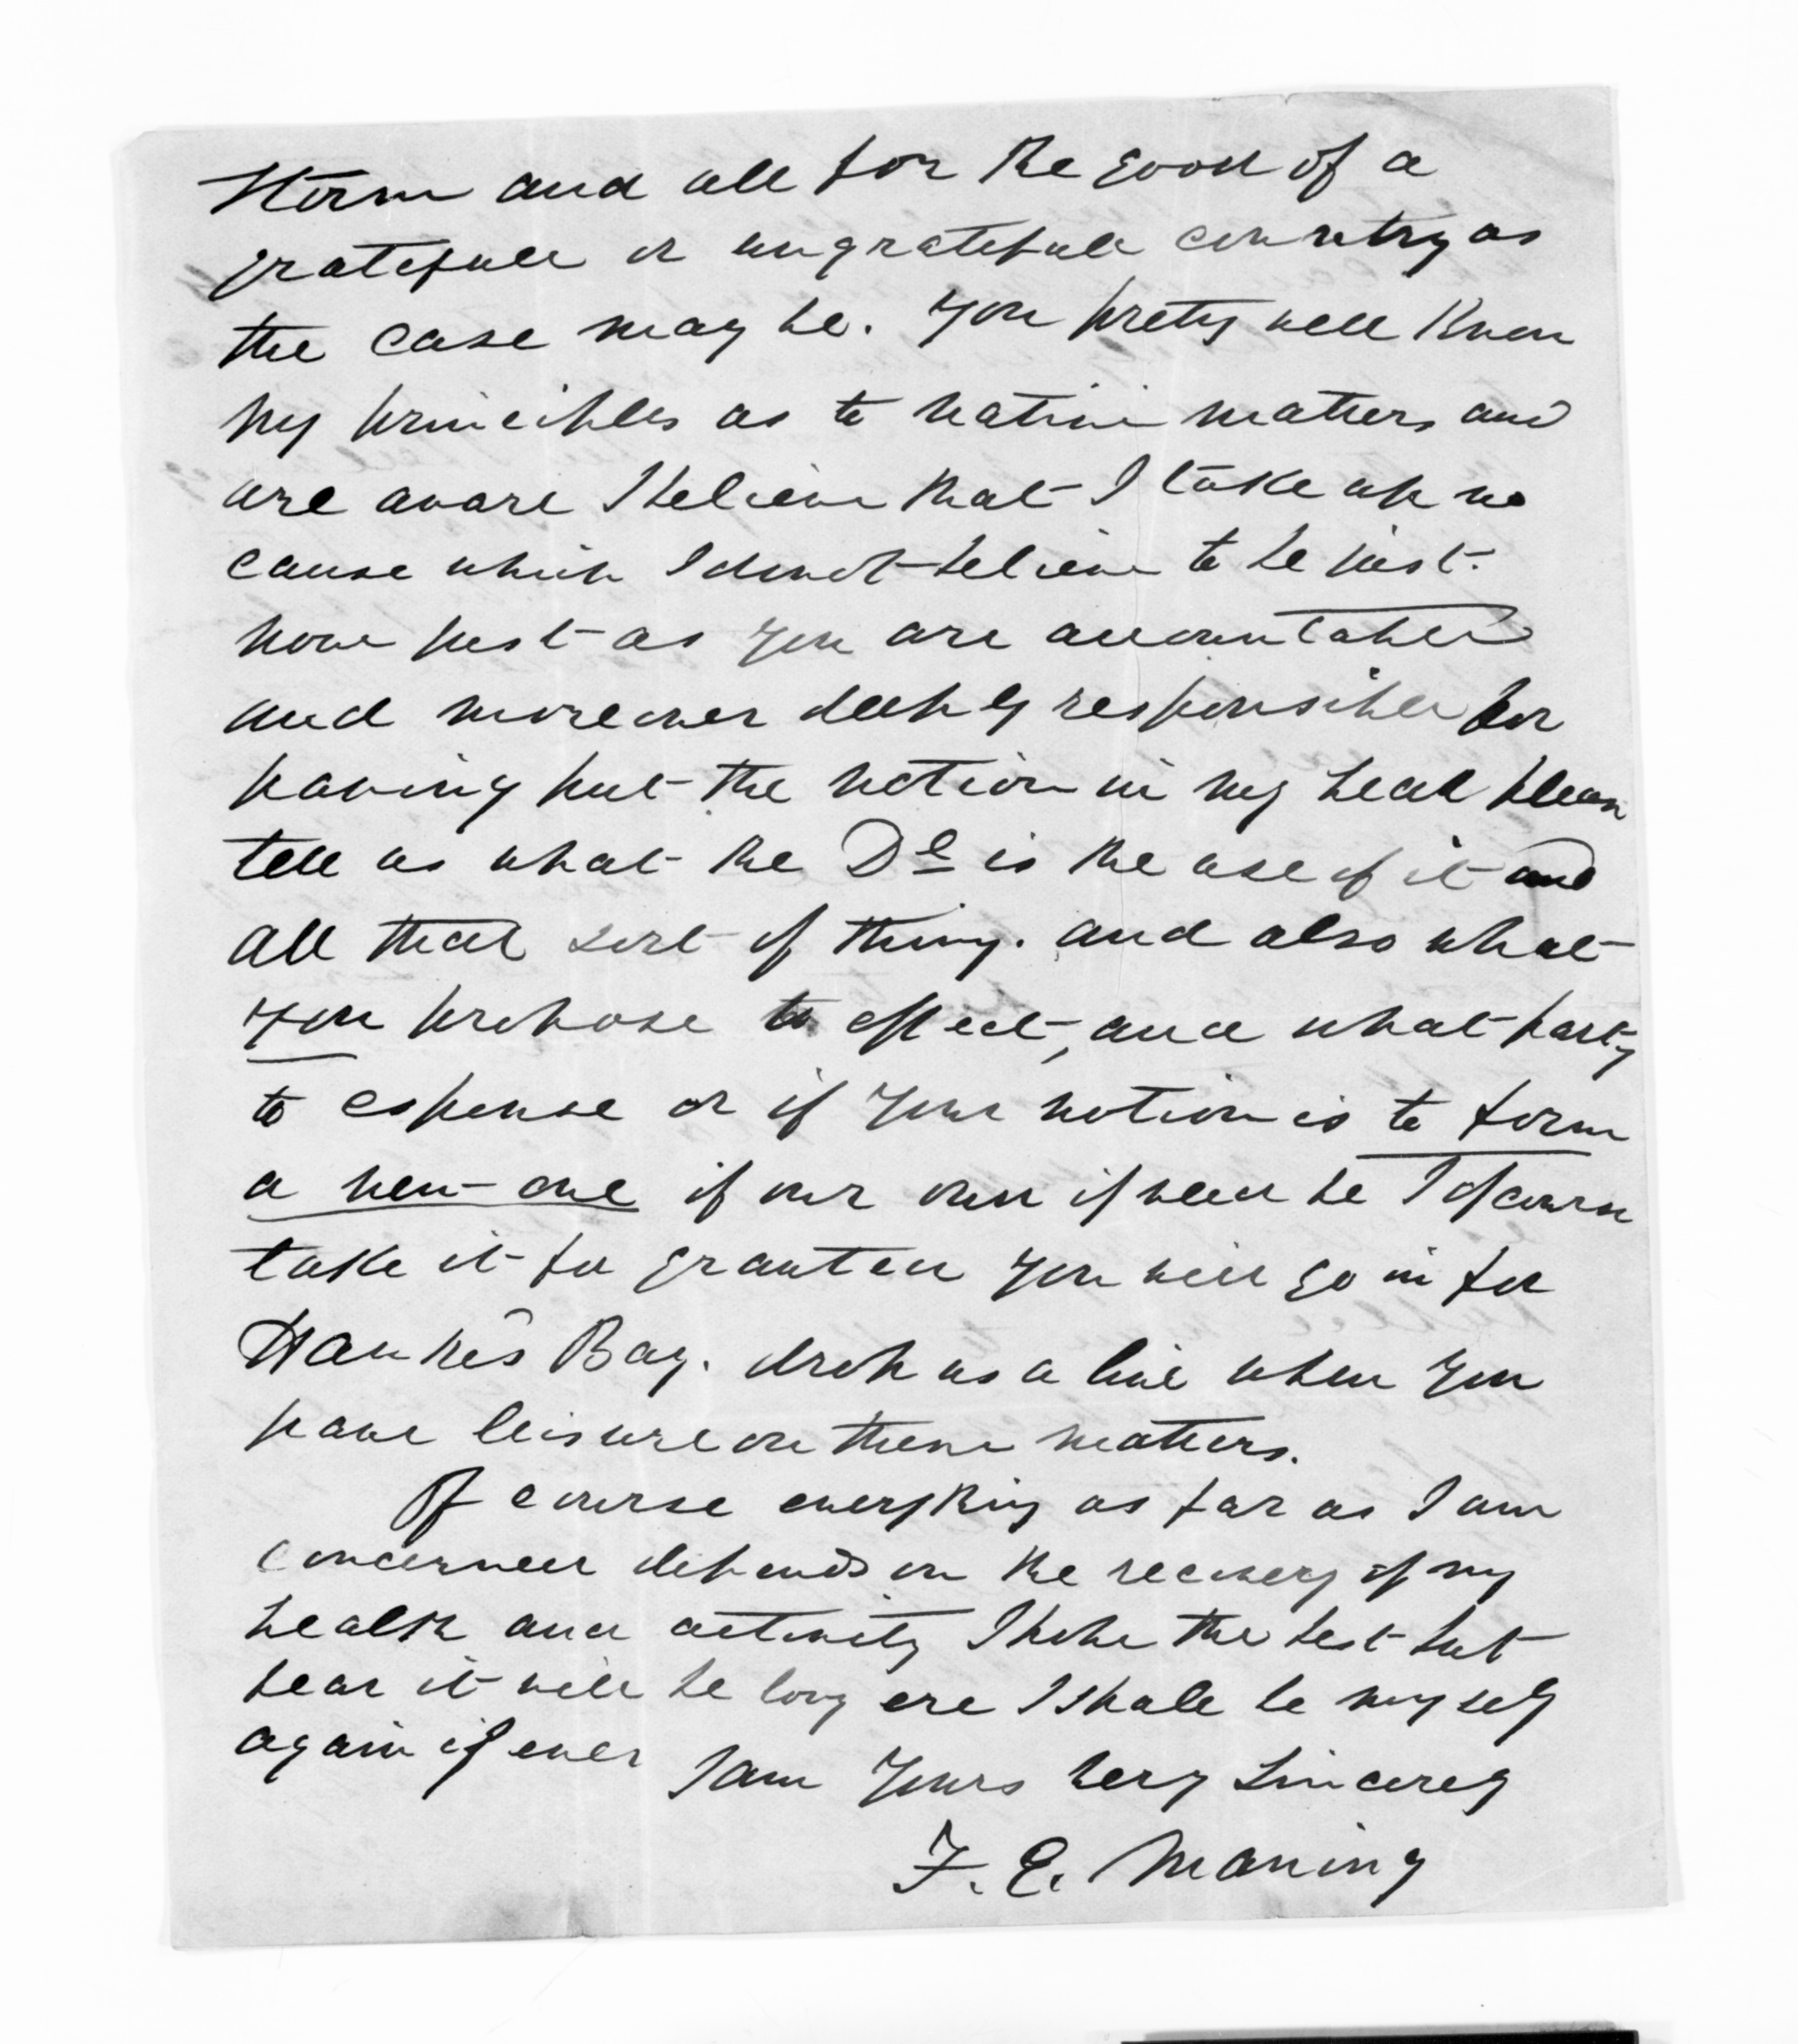 storm and all for the good of a
gratefull or ungratefull country as
the case may be. You pretty well Know
my principles as to native matters and
are aware I believe that I take up no
cause which I do not believe to be just.
now just as you are accountable
and moreover deeply responsible for
having put the notion in my head please
tell us what the D<sup>l</sup> is the use of it and
all that sort of thing. and also what
you propose to effect, and what party
to espouse or if your notion is to form
a new one of our own if need be I of course
take it for granted you will go in for
Hawke's Bay. drop us a line when you
have leisure on these matters.
Of course everything as far as I am
concerned depends on the recovery of my
health and activity I hope the best but
fear it will be long ere I shall be myself
again if ever I am Yours very Sincerely
F. E. Maning